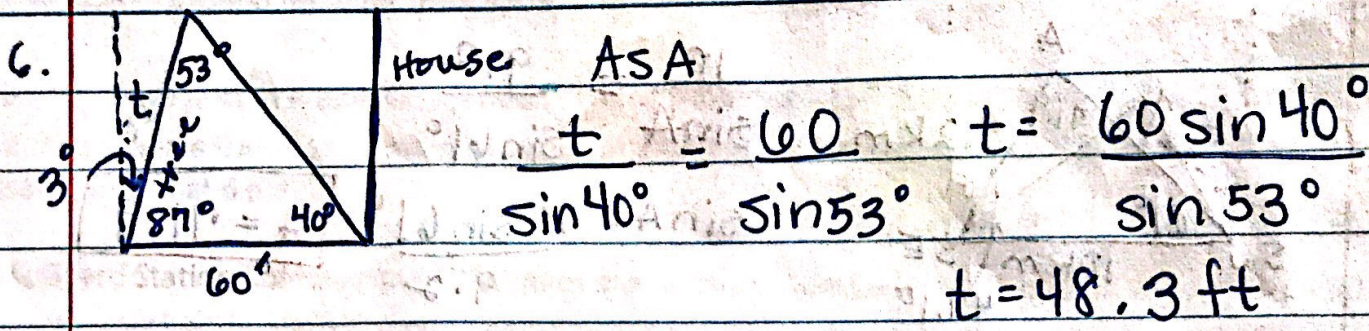 6.
53°
t
tree
3°
87° 40°
60'
House ASA
t/sin40° = 60/sin53° t = 60 sin 40°/sin 53°
t = 48.3 ft